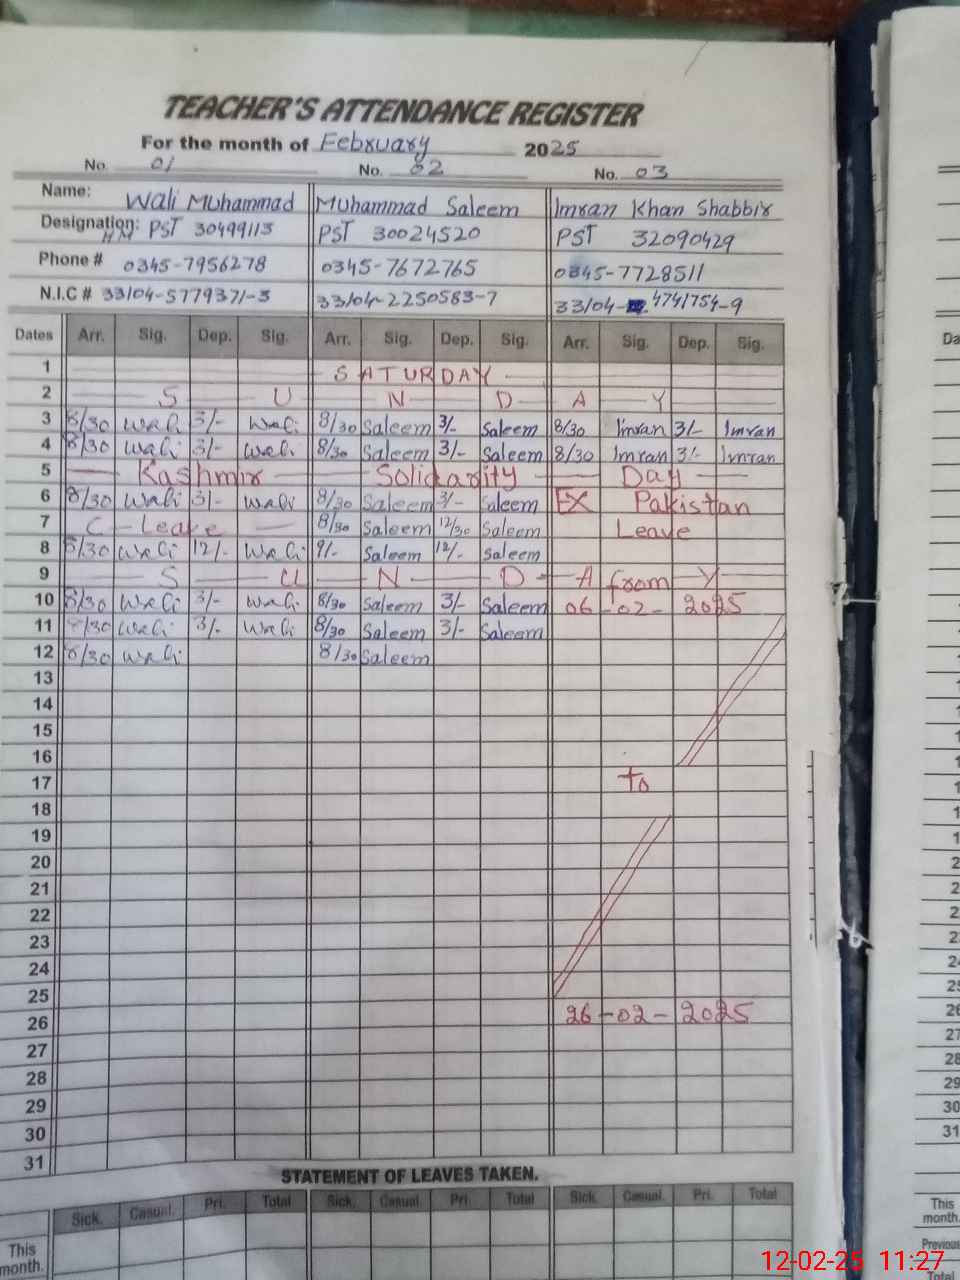 TEACHER'S ATTENDANCE REGISTER
For the month of February 2025
No. 01 No. 02 No. 03
Name: Wali Muhammad Muhammad Saleem Imran Khan Shabbir
Designation: HM PST 30499113 PST 30024520 PST 32090429
Phone # 0345-7956278 0345-7672765 0345-7728511
N.I.C # 33104-5779371-3 33104-2250583-7 33104-4741754-9
Dates Arr. Sig. Dep. Sig. Arr. Sig. Dep. Sig. Arr. Sig. Dep. Sig.
1 SATURDAY
2 S U N D A Y
3 8/30 Wali 3/- Wali 8/30 Saleem 3/- Saleem 8/30 Imran 3/- Imran
4 8/30 Wali 3/- Wali 8/30 Saleem 3/- Saleem 8/30 Imran 3/- Imran
5 Kashmir Solidarity Day
6 8/30 Wali 3/- Wali 8/30 Saleem 3/- Saleem EX Pakistan
7 C - Leave 8/30 Saleem 12/30 Saleem Leave
8 8/30 Wali 12/- Wali 9/- Saleem 12/- Saleem
9 S U N D A Y from
10 8/30 Wali 3/- Wali 8/30 Saleem 3/- Saleem 06-02-2025
11 8/30 Wali 3/- Wali 8/30 Saleem 3/- Saleem
12 8/30 Wali 8/30 Saleem
13
14
15
16
17 to
18
19
20
21
22
23
24
25
26 26-02-2025
27
28
29
30
31
STATEMENT OF LEAVES TAKEN.
Sick. Casual. Pri. Total Sick. Casual. Pri. Total Sick. Casual. Pri. Total
This month.
Da
26
27
28
29
30
31
This month.
Previous
Total
12-02-25 11:27